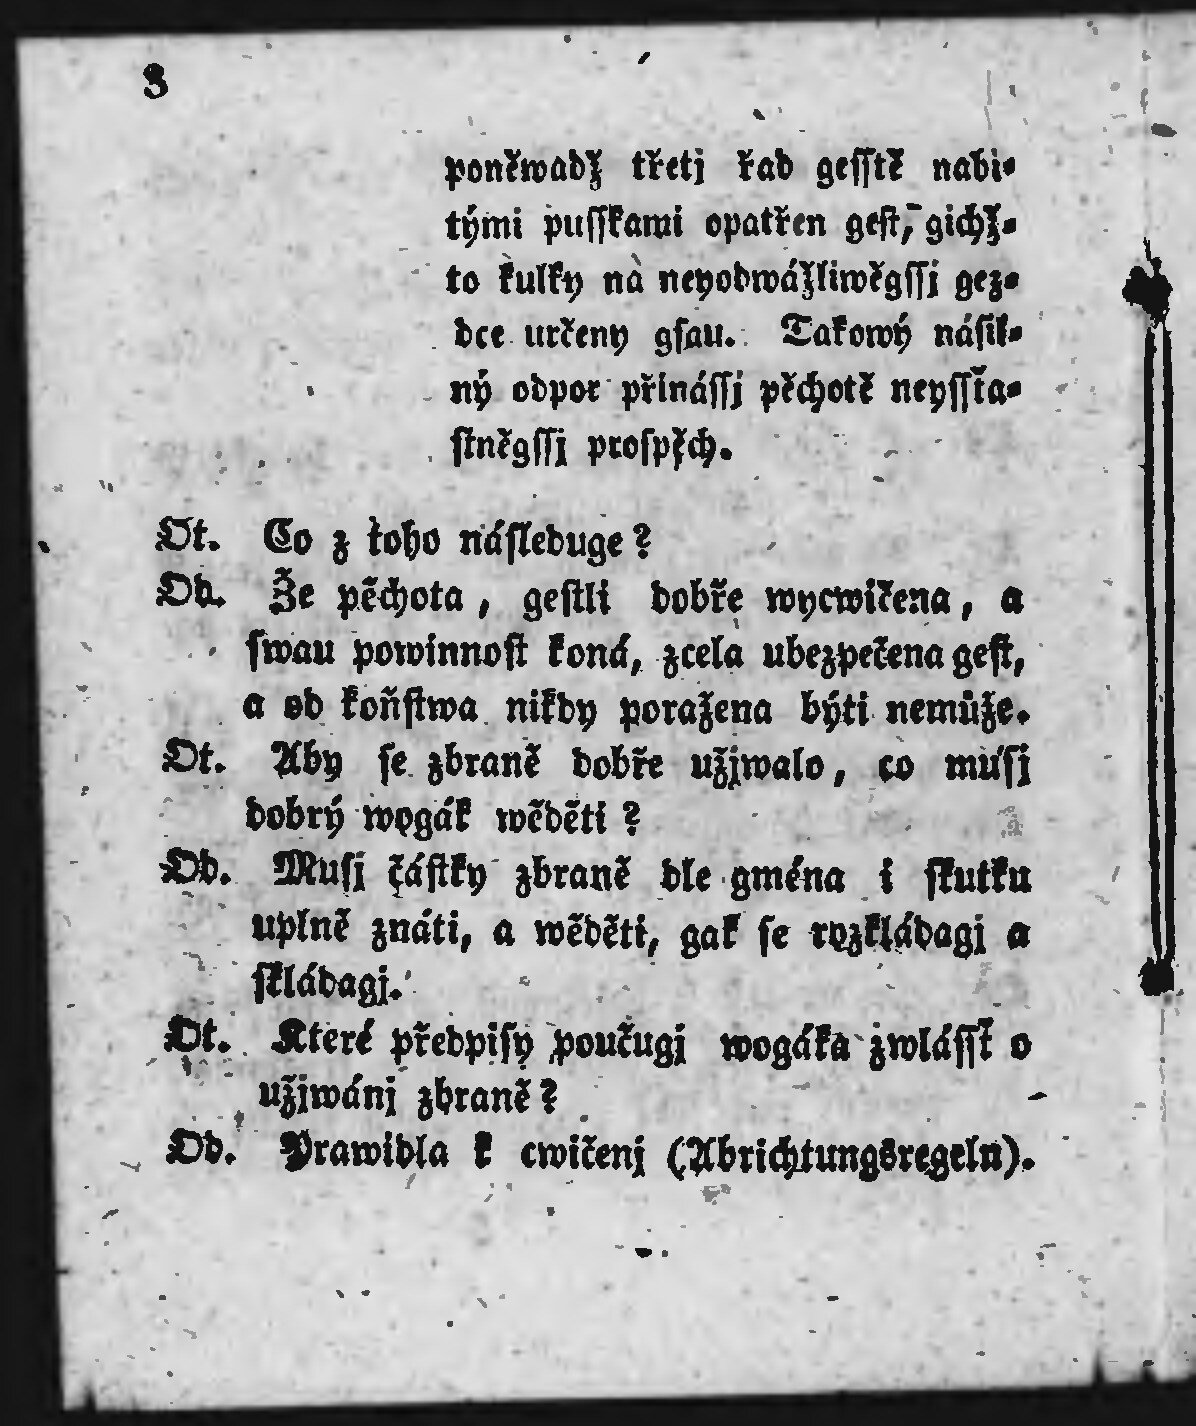 8
poněwadž třetj řad gesstě nabi-
tými pusskami opatřen gest, gichž-
to kulky na neyodwážliwěgssj gez-
dce určeny gsau. Takowý násil-
ný odpor přináſſj pěchotě neyssťa-
stněgssj prospěch.
Ot. Co z toho následuge?
Od. Že pěchota, gestli dobře wycwičena, a
swau powinnost koná, zcela ubezpečena gest,
a od koňstwa nikdy poražena býti nemůže.
Ot. Aby se zbraně dobře užjwalo, co musj
dobrý wogák wěděti?
Od. Musj částky zbraně dle gména i skutku
uplně znáti, a wěděti, gak se rozkládagj a
skládagj.
Ot. Které předpisy poučugj wogáka zwlásst o
užjwánj zbraně?
Od. Prawidla k cwičenj (Abrichtungsregeln).